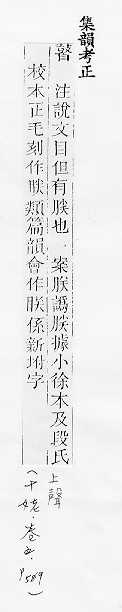 集韻考正
瞽
注說文目但有眹也 案眹譌朕據小徐本及段氏
校本正毛刻作眹類篇韻會作朕係新坿字
上聲
(十姥.卷五.
P589)